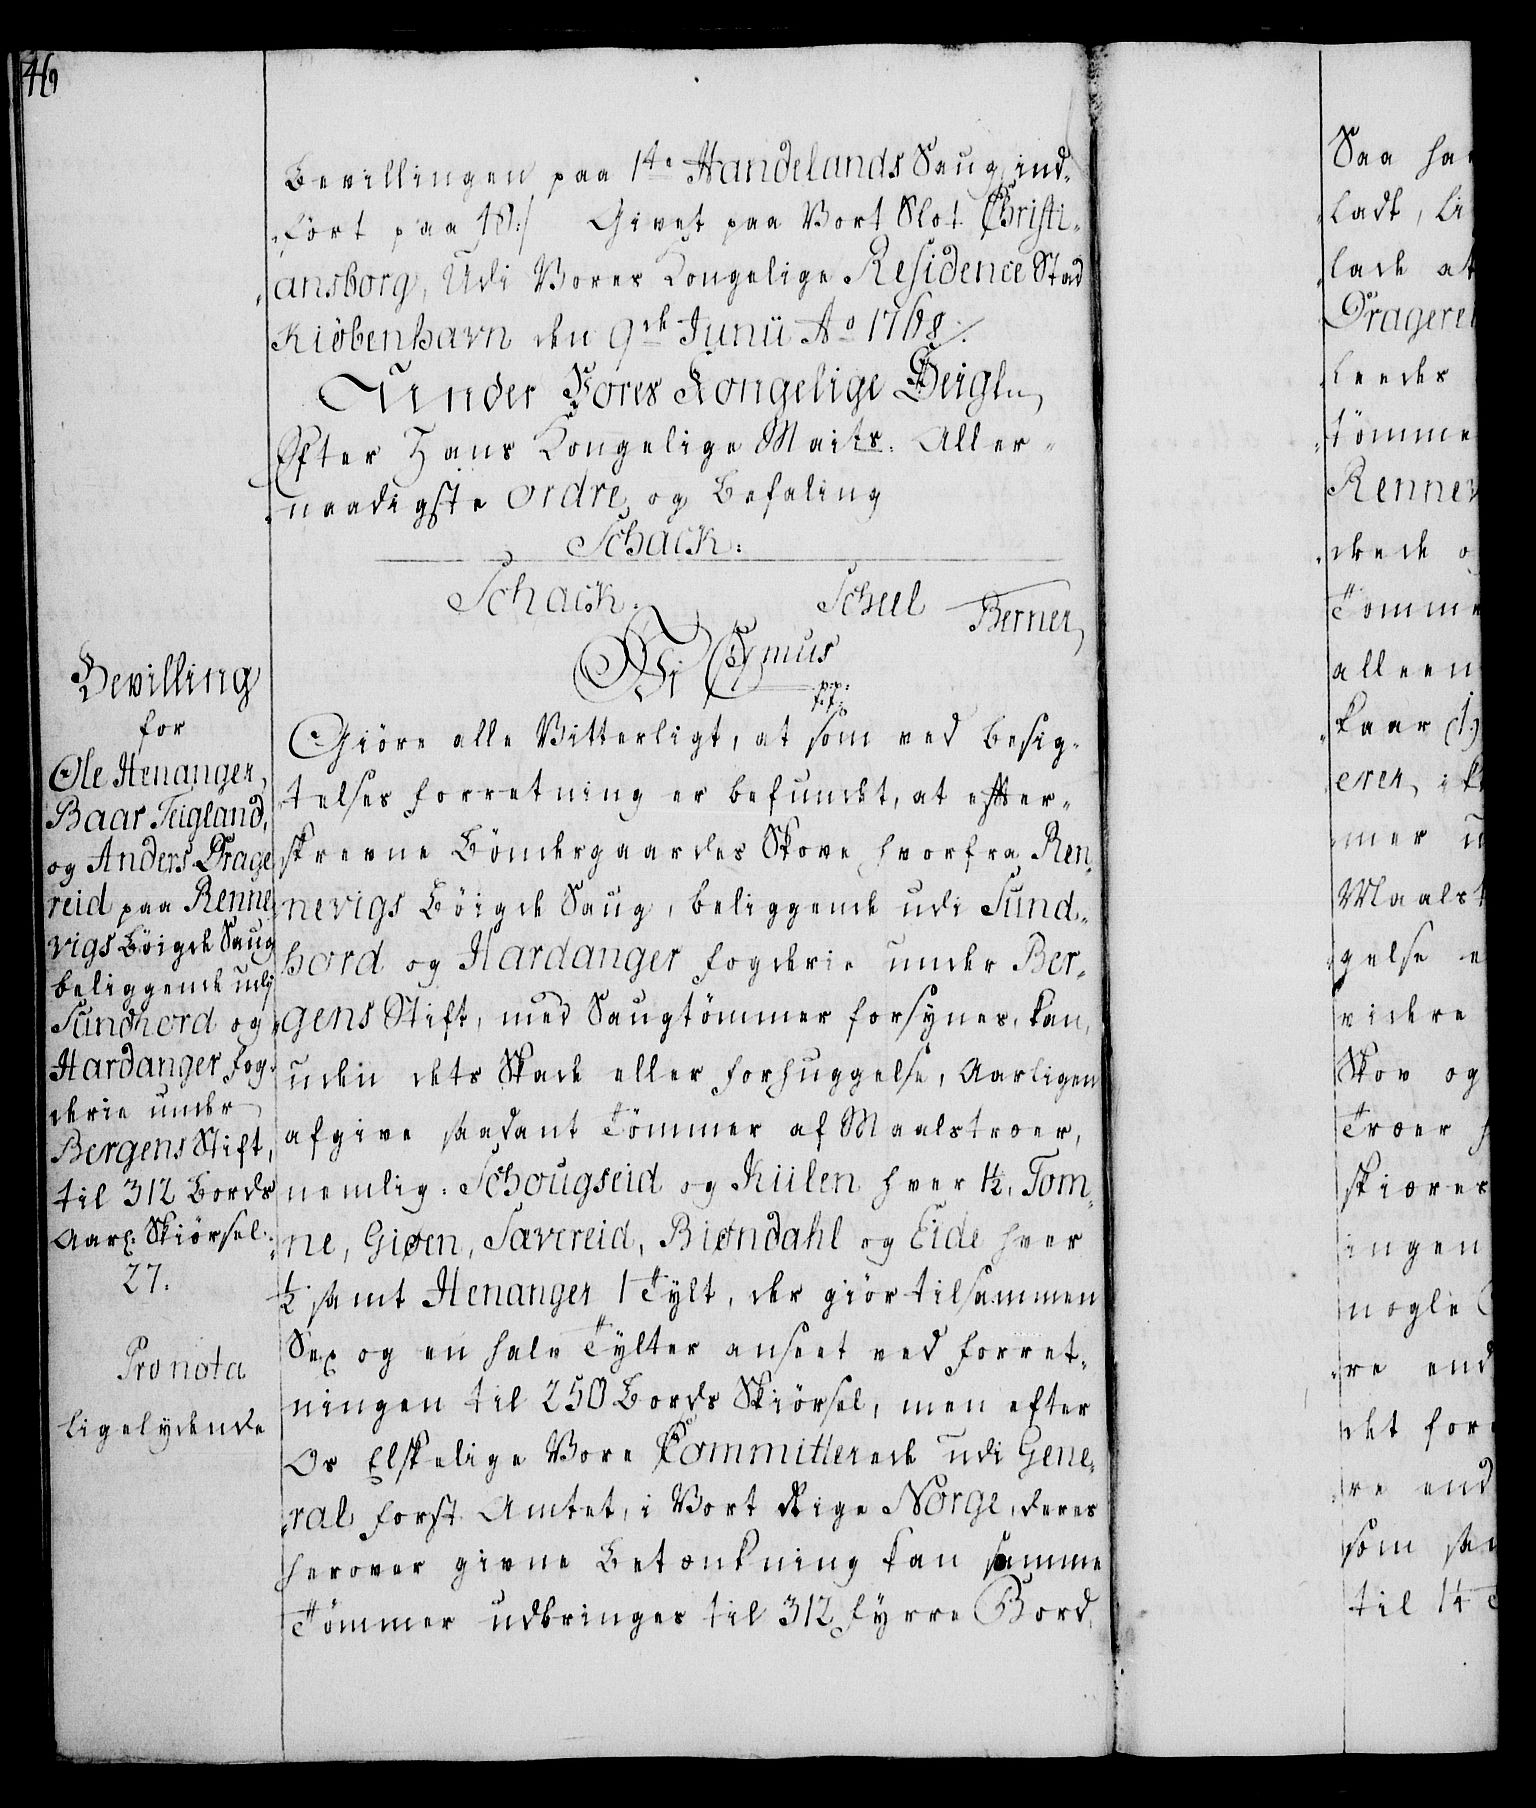 Bevillingen paa 14de Handelands Saug, ind-
ført paa
Givet paa Vort Slot Christi-
ansborg, Udi Vores Kongelige Residence Stad
Kiøbenhavn den 9de Junii Ao 1768./.
Under Vores Kongelige Seigl
Efter Hans Kongelige Maits. Aller-
naadigste ordre og Befaling
Schack:
Schack. Scheel Berner
Bevilling
for
Ole Henanger,
Baar Teigland,
og Anders Drage
reid paa Renne
vigs Böigde Saug
beliggende udj
Sundhord og
Hardanger fog-
derie under
Bergens Stift,
til 312 Bords
Aarl: Skiörsel.
27.
Pro nota
Ligelydende
Vi C 7mus
p:p:
t:t:
Giöre alle Vitterligt, at som ved besig-
telses forretning er befundet, at efter-
skrevne Böndergaardes Skove hvorfra Ren
nevigs Böigde Saug, beliggende udi Sund-
hord og Hardanger fogderie under Ber-
gens Stift, med Saugtömmer forsynes, kan,
uden dets Skade eller forhuggelse, Aarligen
afgive saadant Tömmer af Maalstræer,
nemlig: Schougseid og Kiilen hver 1½, Tom-
ne, Giøen, Sævereid, Biøndahl og Eide hver
½ samt Henanger 1 Tylt, der giör tilsammen
Sex og en halv Tylter anseet ved forret-
ningen til 250 Bords Skiörsel, men efter
Os Elskelige Vore Committerede udi Gene-
ral forst Amtet, i Vort Rige Norge, deres
herover givne Betænkning kan samme
Tömmer udbringes til 312 fyrre Bord,
Saa ha
ladt, li
lade at
Dragerei
leedes
tömme
Renne
dede o
Tomme
alleen
kaar (1.)
eren, i
mer u
Maalst
gelse e
videre
Skov og
Træer
skiærer
ingen
nogle
re end
det for
re end
som sa
til 14